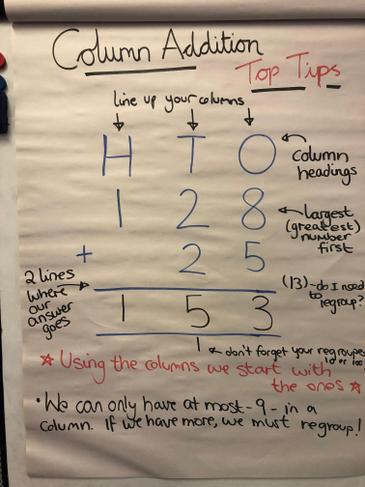 Column Addition
Top Tips
line up your columns
H T O
column
headings
1 2 8
largest
(greatest)
number
first
+ 2 5
(13) - do I need
to
regroup?
2 lines
where
our
answer
goes
1 5 3
1
don't forget your regrouped
10 or 100
* Using the columns we start with
the ones *
• We can only have at most - 9 - in a
column. If we have more, we must regroup!